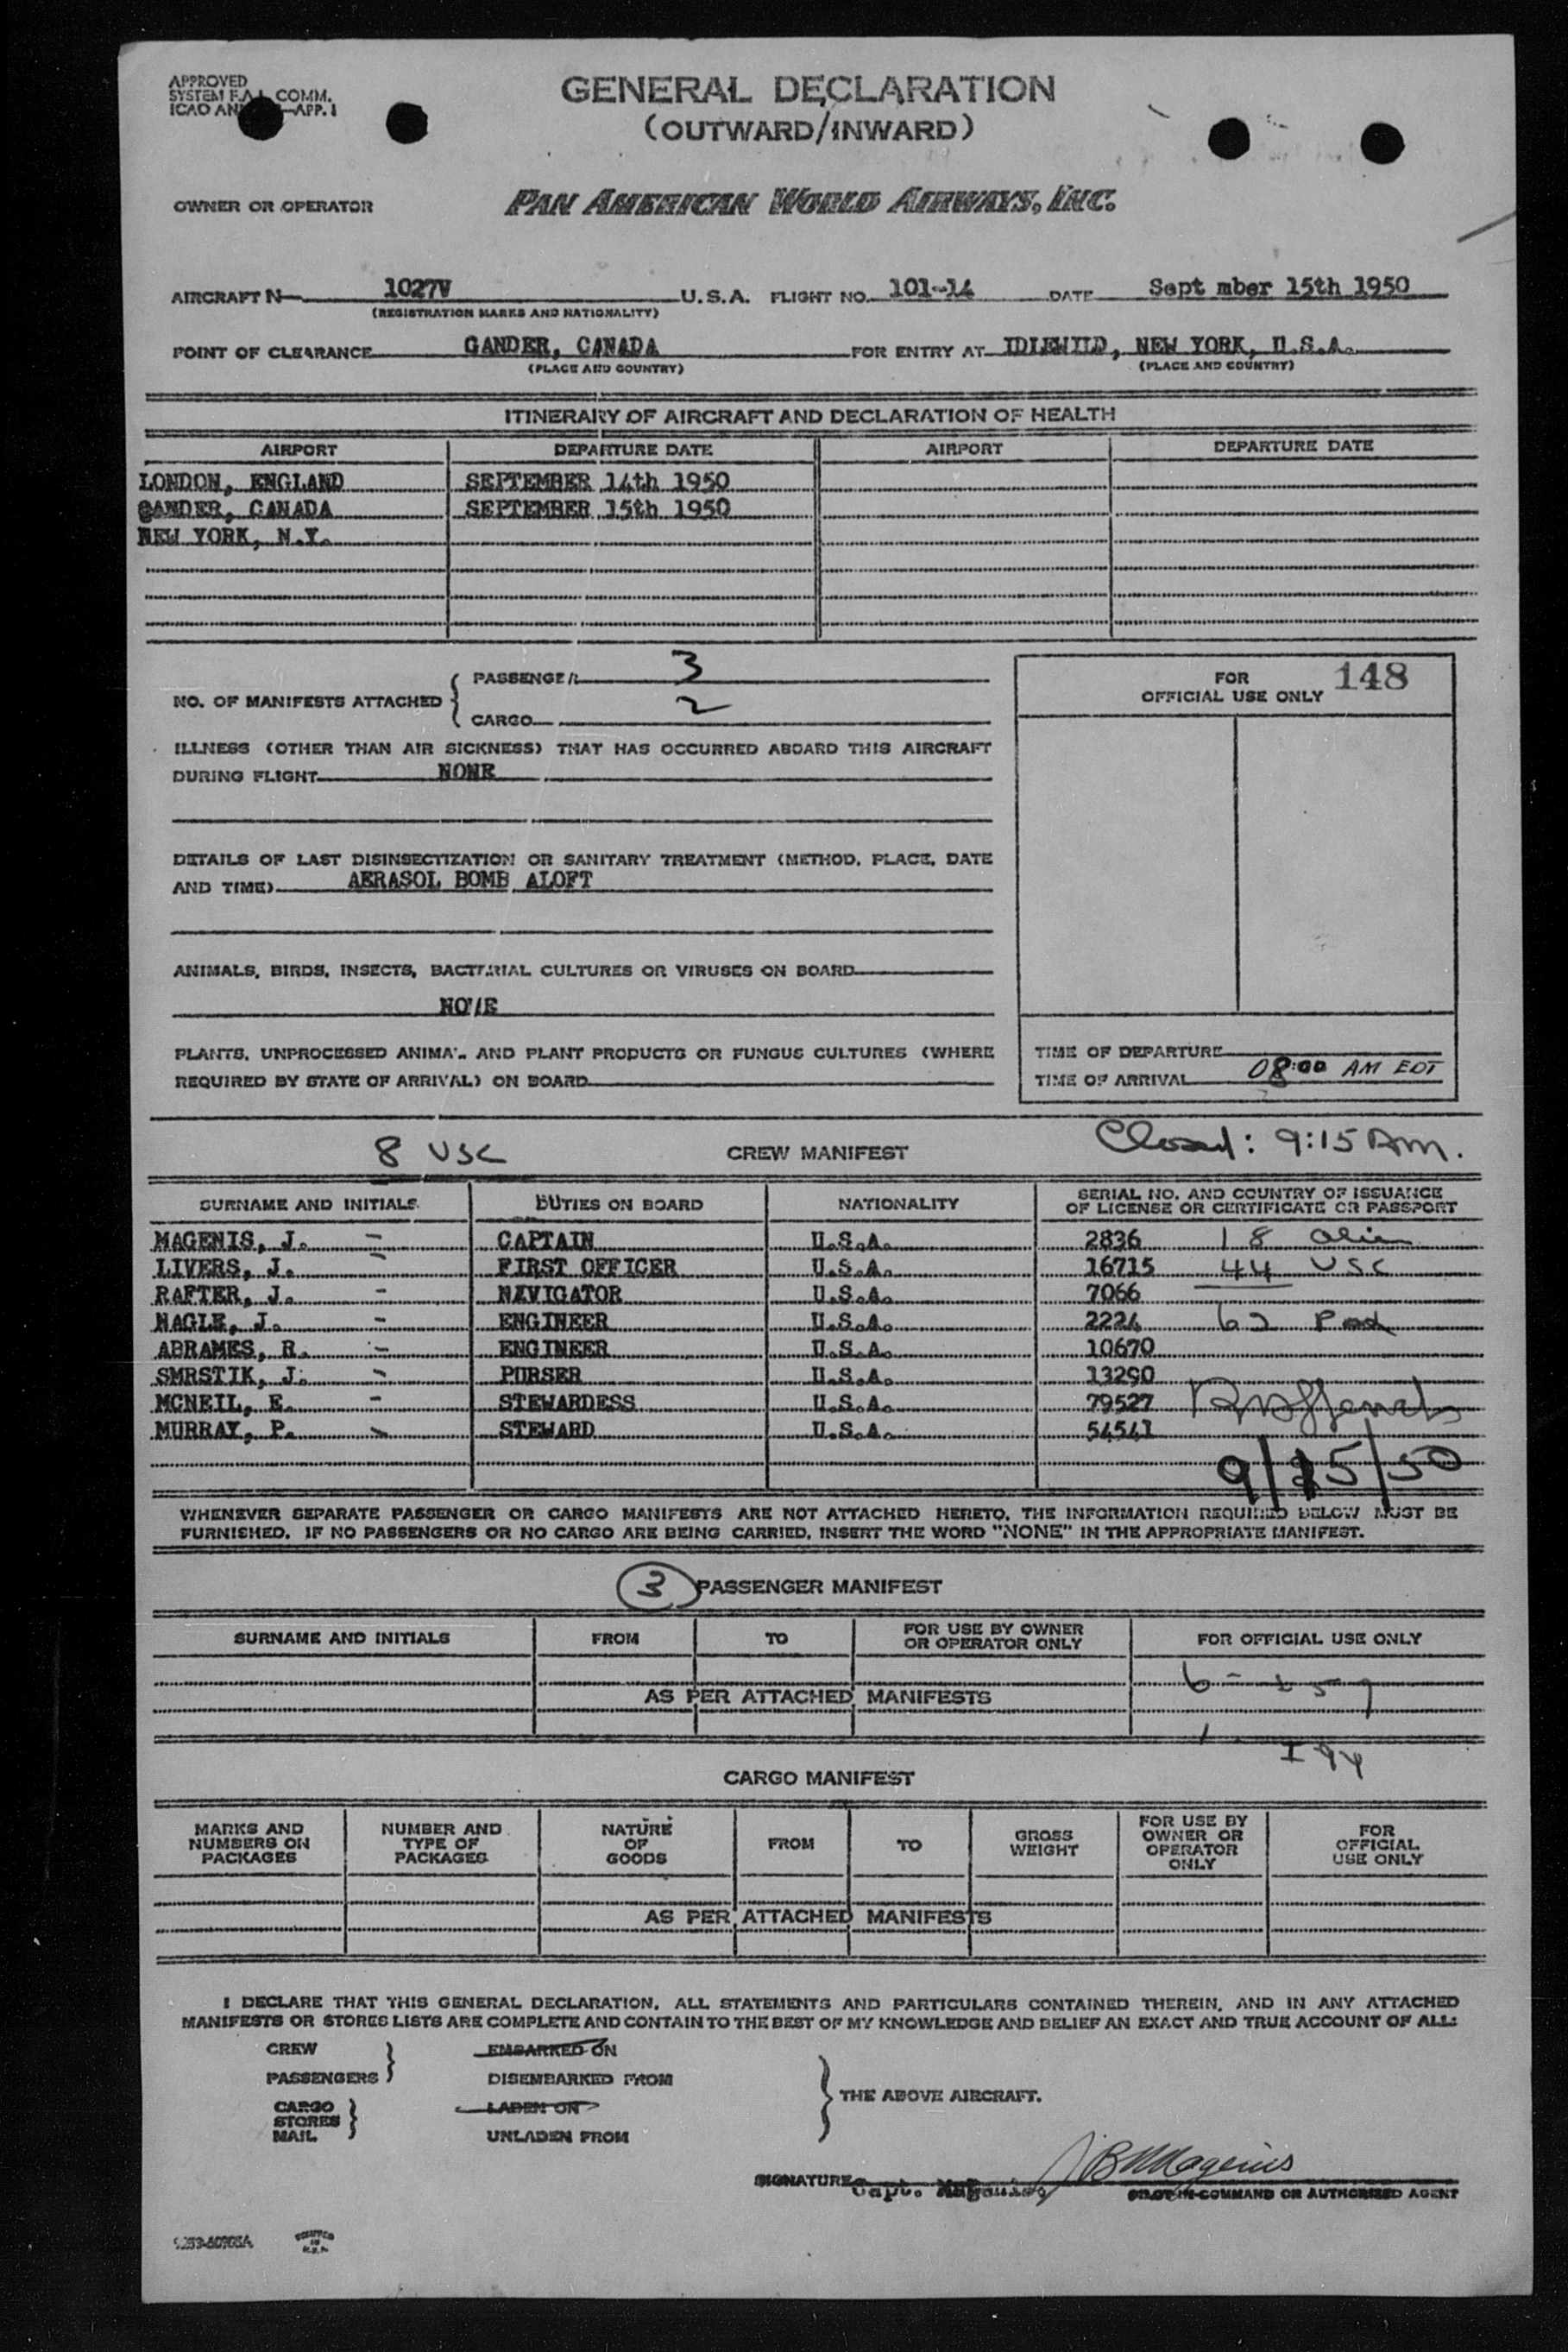 APPROVED
SYSTEM F.A.L. COMM.
ICAO —APP. 1
GENERAL DECLARATION
(OUTWARD/INWARD)
OWNER OR OPERATOR PAN AMERICAN WORLD AIRWAYS, INC.
AIRCRAFT N— 1027V U.S.A. FLIGHT NO. 101-14 DATE Sept mber 15th 1950
(REGISTRATION MARKS AND NATIONALITY)
POINT OF CLEARANCE GANDER, CANADA FOR ENTRY AT IDLEWILD, NEW YORK, U.S.A.
(PLACE AND COUNTRY) (PLACE AND COUNTRY)
ITINERARY OF AIRCRAFT AND DECLARATION OF HEALTH
AIRPORT DEPARTURE DATE AIRPORT DEPARTURE DATE
LONDON, ENGLAND SEPTEMBER 14th 1950
GANDER, CANADA SEPTEMBER 15th 1950
NEW YORK, N.Y.
NO. OF MANIFESTS ATTACHED { PASSENGER 3
CARGO 2
FOR OFFICIAL USE ONLY 148
ILLNESS (OTHER THAN AIR SICKNESS) THAT HAS OCCURRED ABOARD THIS AIRCRAFT
DURING FLIGHT NONE
DETAILS OF LAST DISINSECTIZATION OR SANITARY TREATMENT (METHOD, PLACE, DATE
AND TIME) AERASOL BOMB ALOFT
ANIMALS, BIRDS, INSECTS, BACTERIAL CULTURES OR VIRUSES ON BOARD
NONE
PLANTS, UNPROCESSED ANIMAL AND PLANT PRODUCTS OR FUNGUS CULTURES (WHERE
REQUIRED BY STATE OF ARRIVAL) ON BOARD
TIME OF DEPARTURE
TIME OF ARRIVAL 08:00 AM EDT
8 USC CREW MANIFEST Closed: 9:15 AM.
SURNAME AND INITIALS DUTIES ON BOARD NATIONALITY SERIAL NO. AND COUNTRY OF ISSUANCE
OF LICENSE OR CERTIFICATE OR PASSPORT
MAGENIS, J. – CAPTAIN U.S.A. 2836 18 alien
LIVERS, J. – FIRST OFFICER U.S.A. 16715 44 USC
RAFTER, J. – NAVIGATOR U.S.A. 7066
NAGLE, J. – ENGINEER U.S.A. 2224 62
ABRAMES, R. – ENGINEER U.S.A. 10670
SMRSTIK, J. – PURSER U.S.A. 13290
MCNEIL, E. – STEWARDESS U.S.A. 79527
MURRAY, P. – STEWARD U.S.A. 54541
9/15/50
WHENEVER SEPARATE PASSENGER OR CARGO MANIFESTS ARE NOT ATTACHED HERETO, THE INFORMATION REQUIRED BELOW MUST BE
FURNISHED. IF NO PASSENGERS OR NO CARGO ARE BEING CARRIED, INSERT THE WORD "NONE" IN THE APPROPRIATE MANIFEST.
3 PASSENGER MANIFEST
SURNAME AND INITIALS FROM TO FOR USE BY OWNER OR OPERATOR ONLY FOR OFFICIAL USE ONLY
AS PER ATTACHED MANIFESTS
CARGO MANIFEST
MARKS AND NUMBERS ON PACKAGES NUMBER AND TYPE OF PACKAGES NATURE OF GOODS FROM TO GROSS WEIGHT FOR USE BY OWNER OR OPERATOR ONLY FOR OFFICIAL USE ONLY
AS PER ATTACHED MANIFESTS
I DECLARE THAT THIS GENERAL DECLARATION, ALL STATEMENTS AND PARTICULARS CONTAINED THEREIN, AND IN ANY ATTACHED
MANIFESTS OR STORES LISTS ARE COMPLETE AND CONTAIN TO THE BEST OF MY KNOWLEDGE AND BELIEF AN EXACT AND TRUE ACCOUNT OF ALL:
CREW EMBARKED ON
PASSENGERS DISEMBARKED FROM
THE ABOVE AIRCRAFT.
CARGO LADEN ON
STORES
MAIL UNLADEN FROM
SIGNATURE Capt. Magenis, JB Magenis
PILOT-IN-COMMAND OR AUTHORIZED AGENT